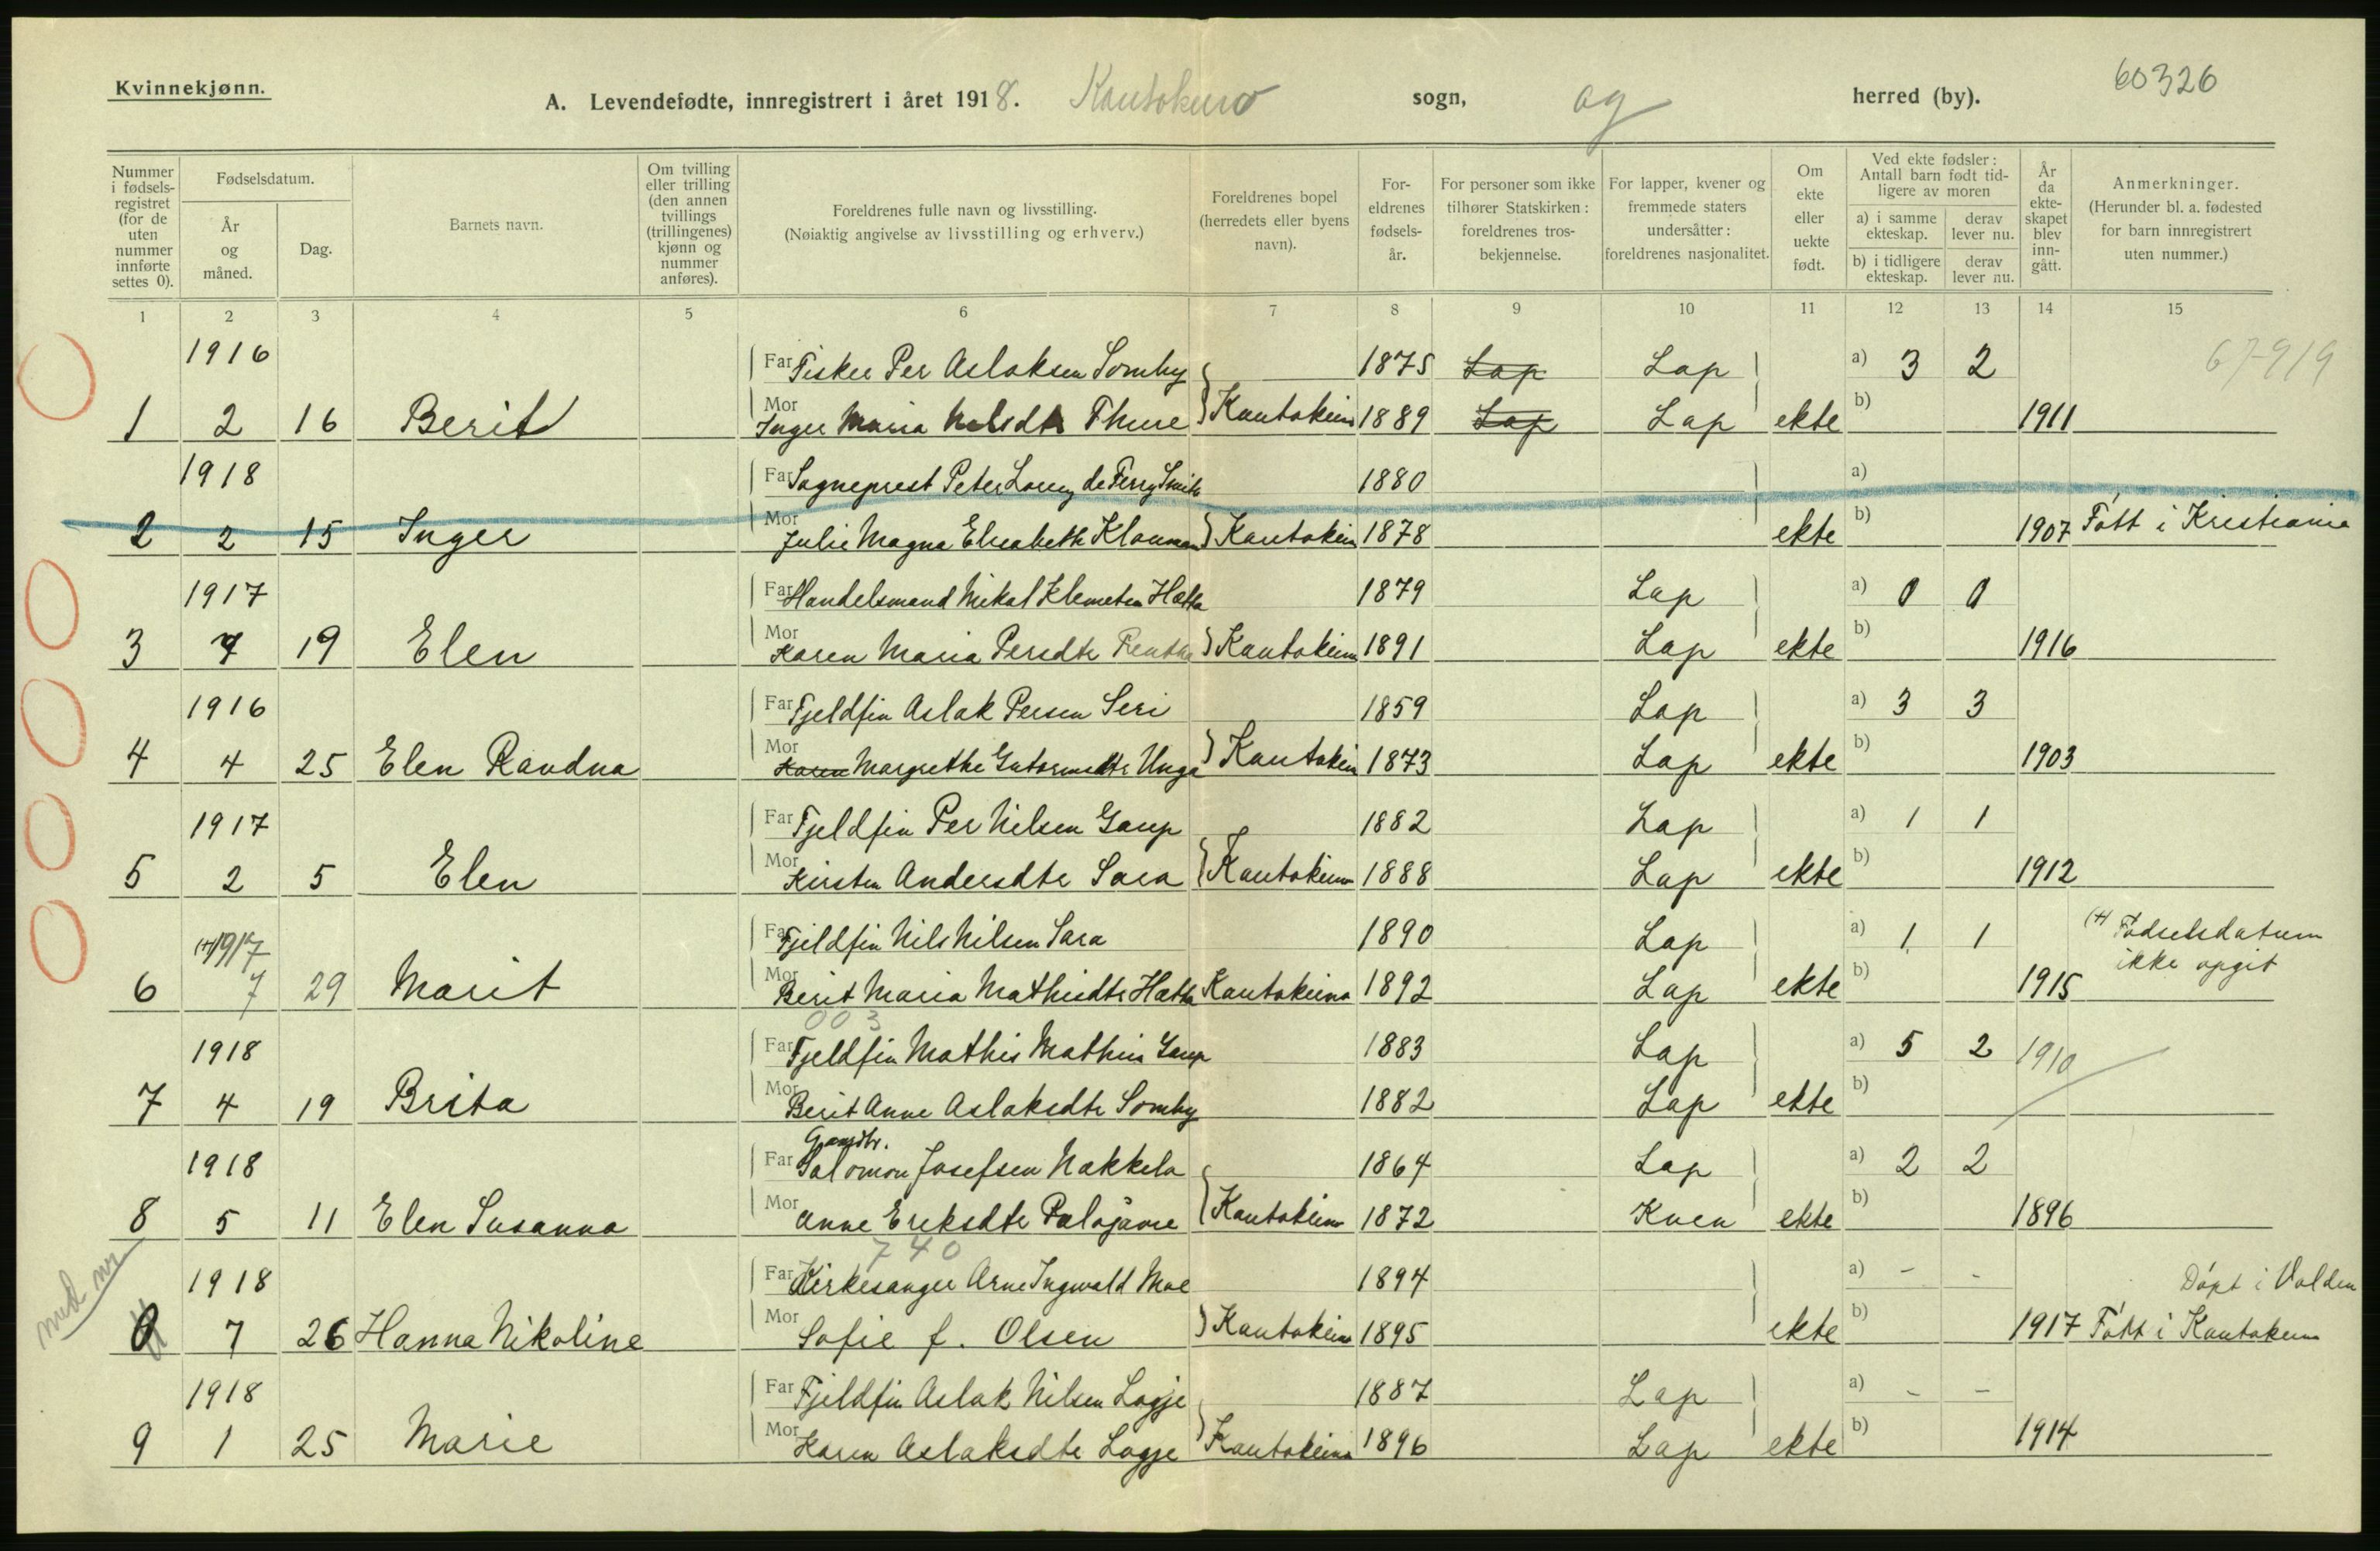 Kvinnekjønn.
A. Levendefødte, innregistrert i året 1918. Kautokeino sogn, og herred (by).
60326
Nummer i fødsels-registret (for de uten nummer innførte settes 0).
Fødselsdatum.
År og måned.
Dag.
Barnets navn.
Om tvilling eller trilling (den annen tvillings (trillingenes) kjønn og nummer anføres).
Foreldrenes fulle navn og livsstilling.
(Nøiaktig angivelse av livsstilling og erhverv.)
Foreldrenes bopel (herredets eller byens navn).
For-eldrenes fødsels-år.
For personer som ikke tilhører Statskirken: foreldrenes tros-bekjennelse.
For lapper, kvener og fremmede staters undersåtter: foreldrenes nasjonalitet.
Om ekte eller uekte født.
Ved ekte fødsler: Antall barn født tid-ligere av moren
a) i samme ekteskap.
derav lever nu.
b) i tidligere ekteskap.
derav lever nu.
År da ekte-skapet blev inn-gått.
Anmerkninger.
(Herunder bl. a. fødested for barn innregistrert uten nummer.)
1 2 3 4 5 6 7 8 9 10 11 12 13 14 15
1916 Far Fisker Per Aslaksen Somby 1875 Lap Lap a) 3 2 67-919
1 2 16 Berit Mor Inger Maria Nilsdtr Thure Kautokeino 1889 Lap Lap ekte b) 1911
1918 Far Sogneprest Peter Lorenz de Ferry Smith 1880 a)
2 2 15 Inger Mor Julie Magna Elisabeth Klouman Kautokein 1878 ekte b) 1907 Født i Kristiania
1917 Far Handelsmand Mikal Klemetsen Hætta 1879 Lap a) 0 0
3 7 19 Elen Mor Karen Maria Persdtr Kautokeino 1891 Lap ekte b) 1916
1916 Far Fjeldfin Aslak Persen Siri 1859 Lap a) 3 3
4 4 25 Elen Ravdna Mor Karen Margrethe Gutormsdtr Unga Kautokein 1873 Lap ekte b) 1903
1917 Far Fjeldfin Per Nilsen Gaup 1882 Lap a) 1 1
5 2 5 Elen Mor Kirsten Andersdtr Sara Kautokeino 1888 Lap ekte b) 1912
(+) 1917 Far Fjeldfin Nils Nilsen Sara 1890 Lap a) 1 1 (+) Fødselsdatum
6 7 29 Marit Mor Berit Maria Mathisdtr Hætta Kautokeino 1892 Lap ekte b) 1915 ikke opgit
003
1918 Far Fjeldfin Mathis Mathisen Gaup 1883 Lap a) 5 2 1910
7 4 19 Brita Mor Berit Anne Aslaksdtr Somby 1882 Lap ekte b)
Gaardbr.
1918 Far Salomon Josefsen Nakkela 1864 Lap a) 2 2
8 5 11 Elen Susanna Mor Anne Eriksdtr Palojärvi Kautokeino 1872 Kven ekte b) 1896
740
1918 Far Kirkesanger Arne Ingwald Moe 1894 a) - - Døpt i Valden
med nr
0 7 26 Hanna Nikoline Mor Sofie f. Olsen Kautokeino 1895 ekte b) 1917 Født i Kautokeino
1918 Far Fjeldfin Aslak Nilsen Logje 1887 Lap a) - -
9 1 25 Marie Mor Karen Aslaksdtr Logje Kautokeino 1896 Lap ekte b) 1914